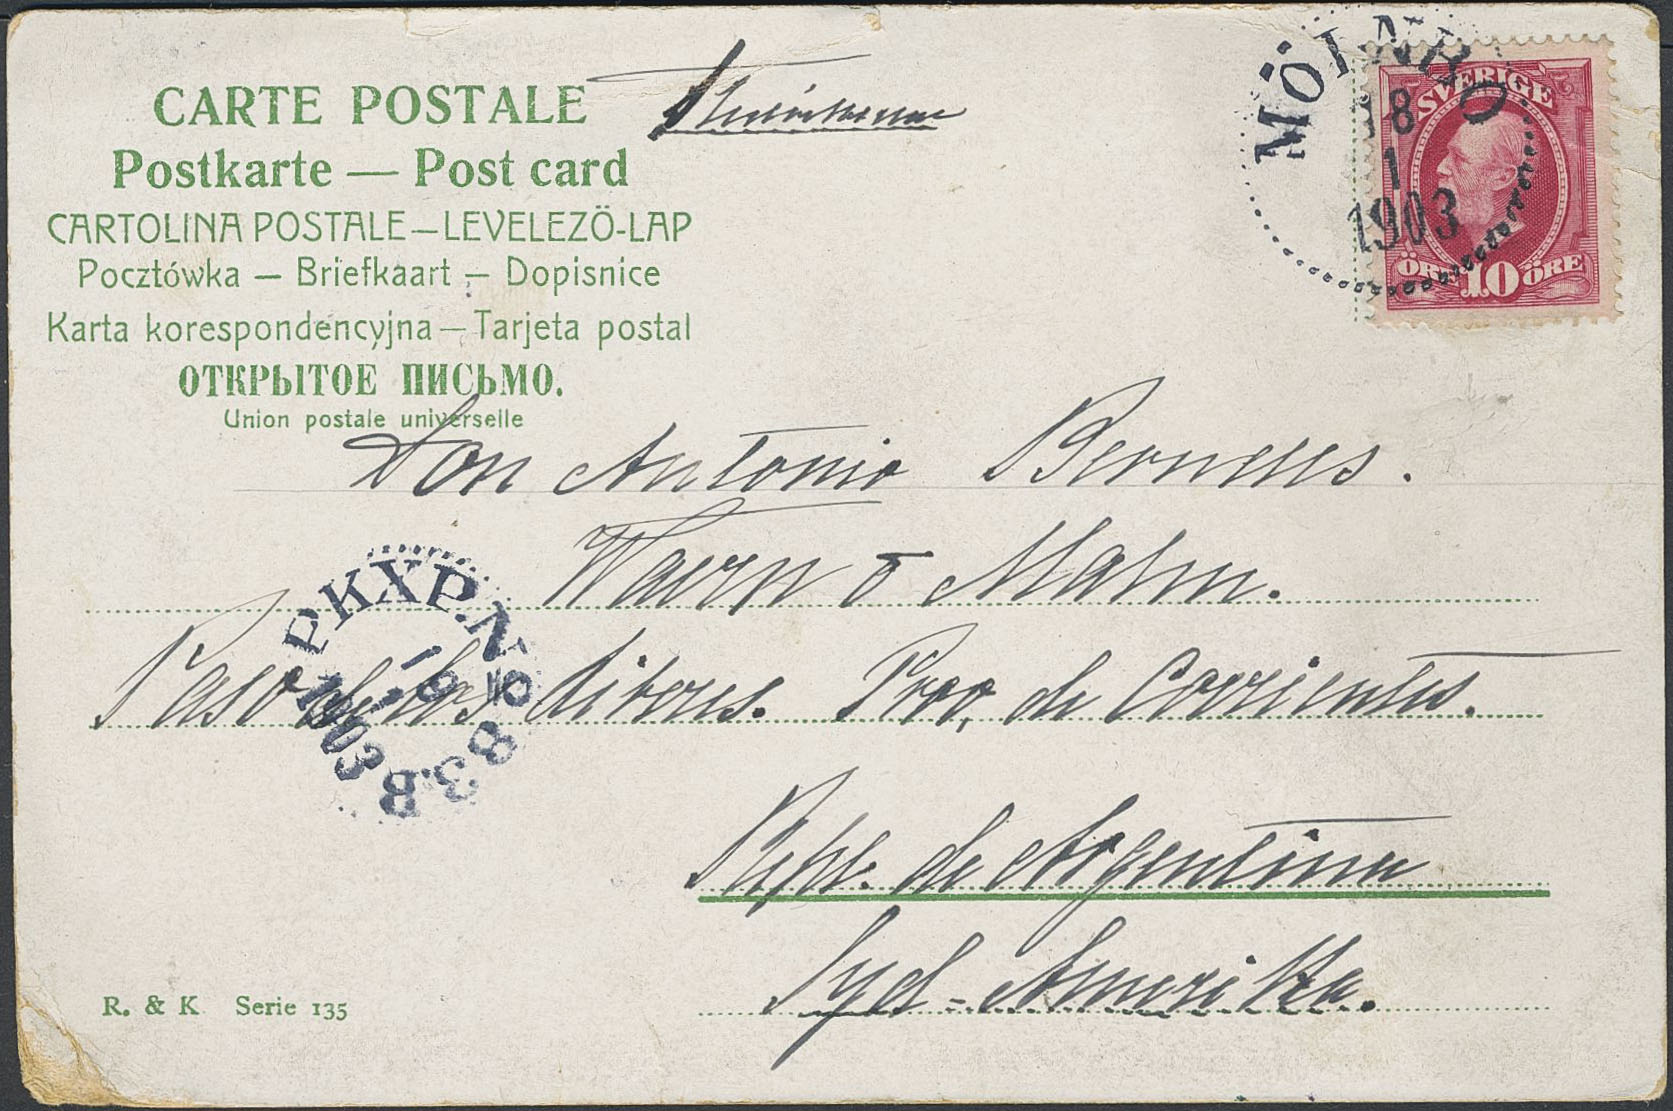 CARTE POSTALE
Postkarte — Post card
CARTOLINA POSTALE—LEVELEZÖ-LAP
Pocztówka — Briefkaart — Dopisnice
Karta korespondencyjna—Tarjeta postal
ОТКРЫТОЕ ПИСЬМО.
Union postale universelle
MÖLNBO
18
1
1903
SVERIGE
ÖRE 10 ÖRE
Don Antonio Berneus.
Warn o Malm.
Paso de los Libres. Prov. de Corrientes.
PKXP. No 83. B
19
1
1903
Repl. de Argentina
Syd-Amerika.
R. & K Serie 135